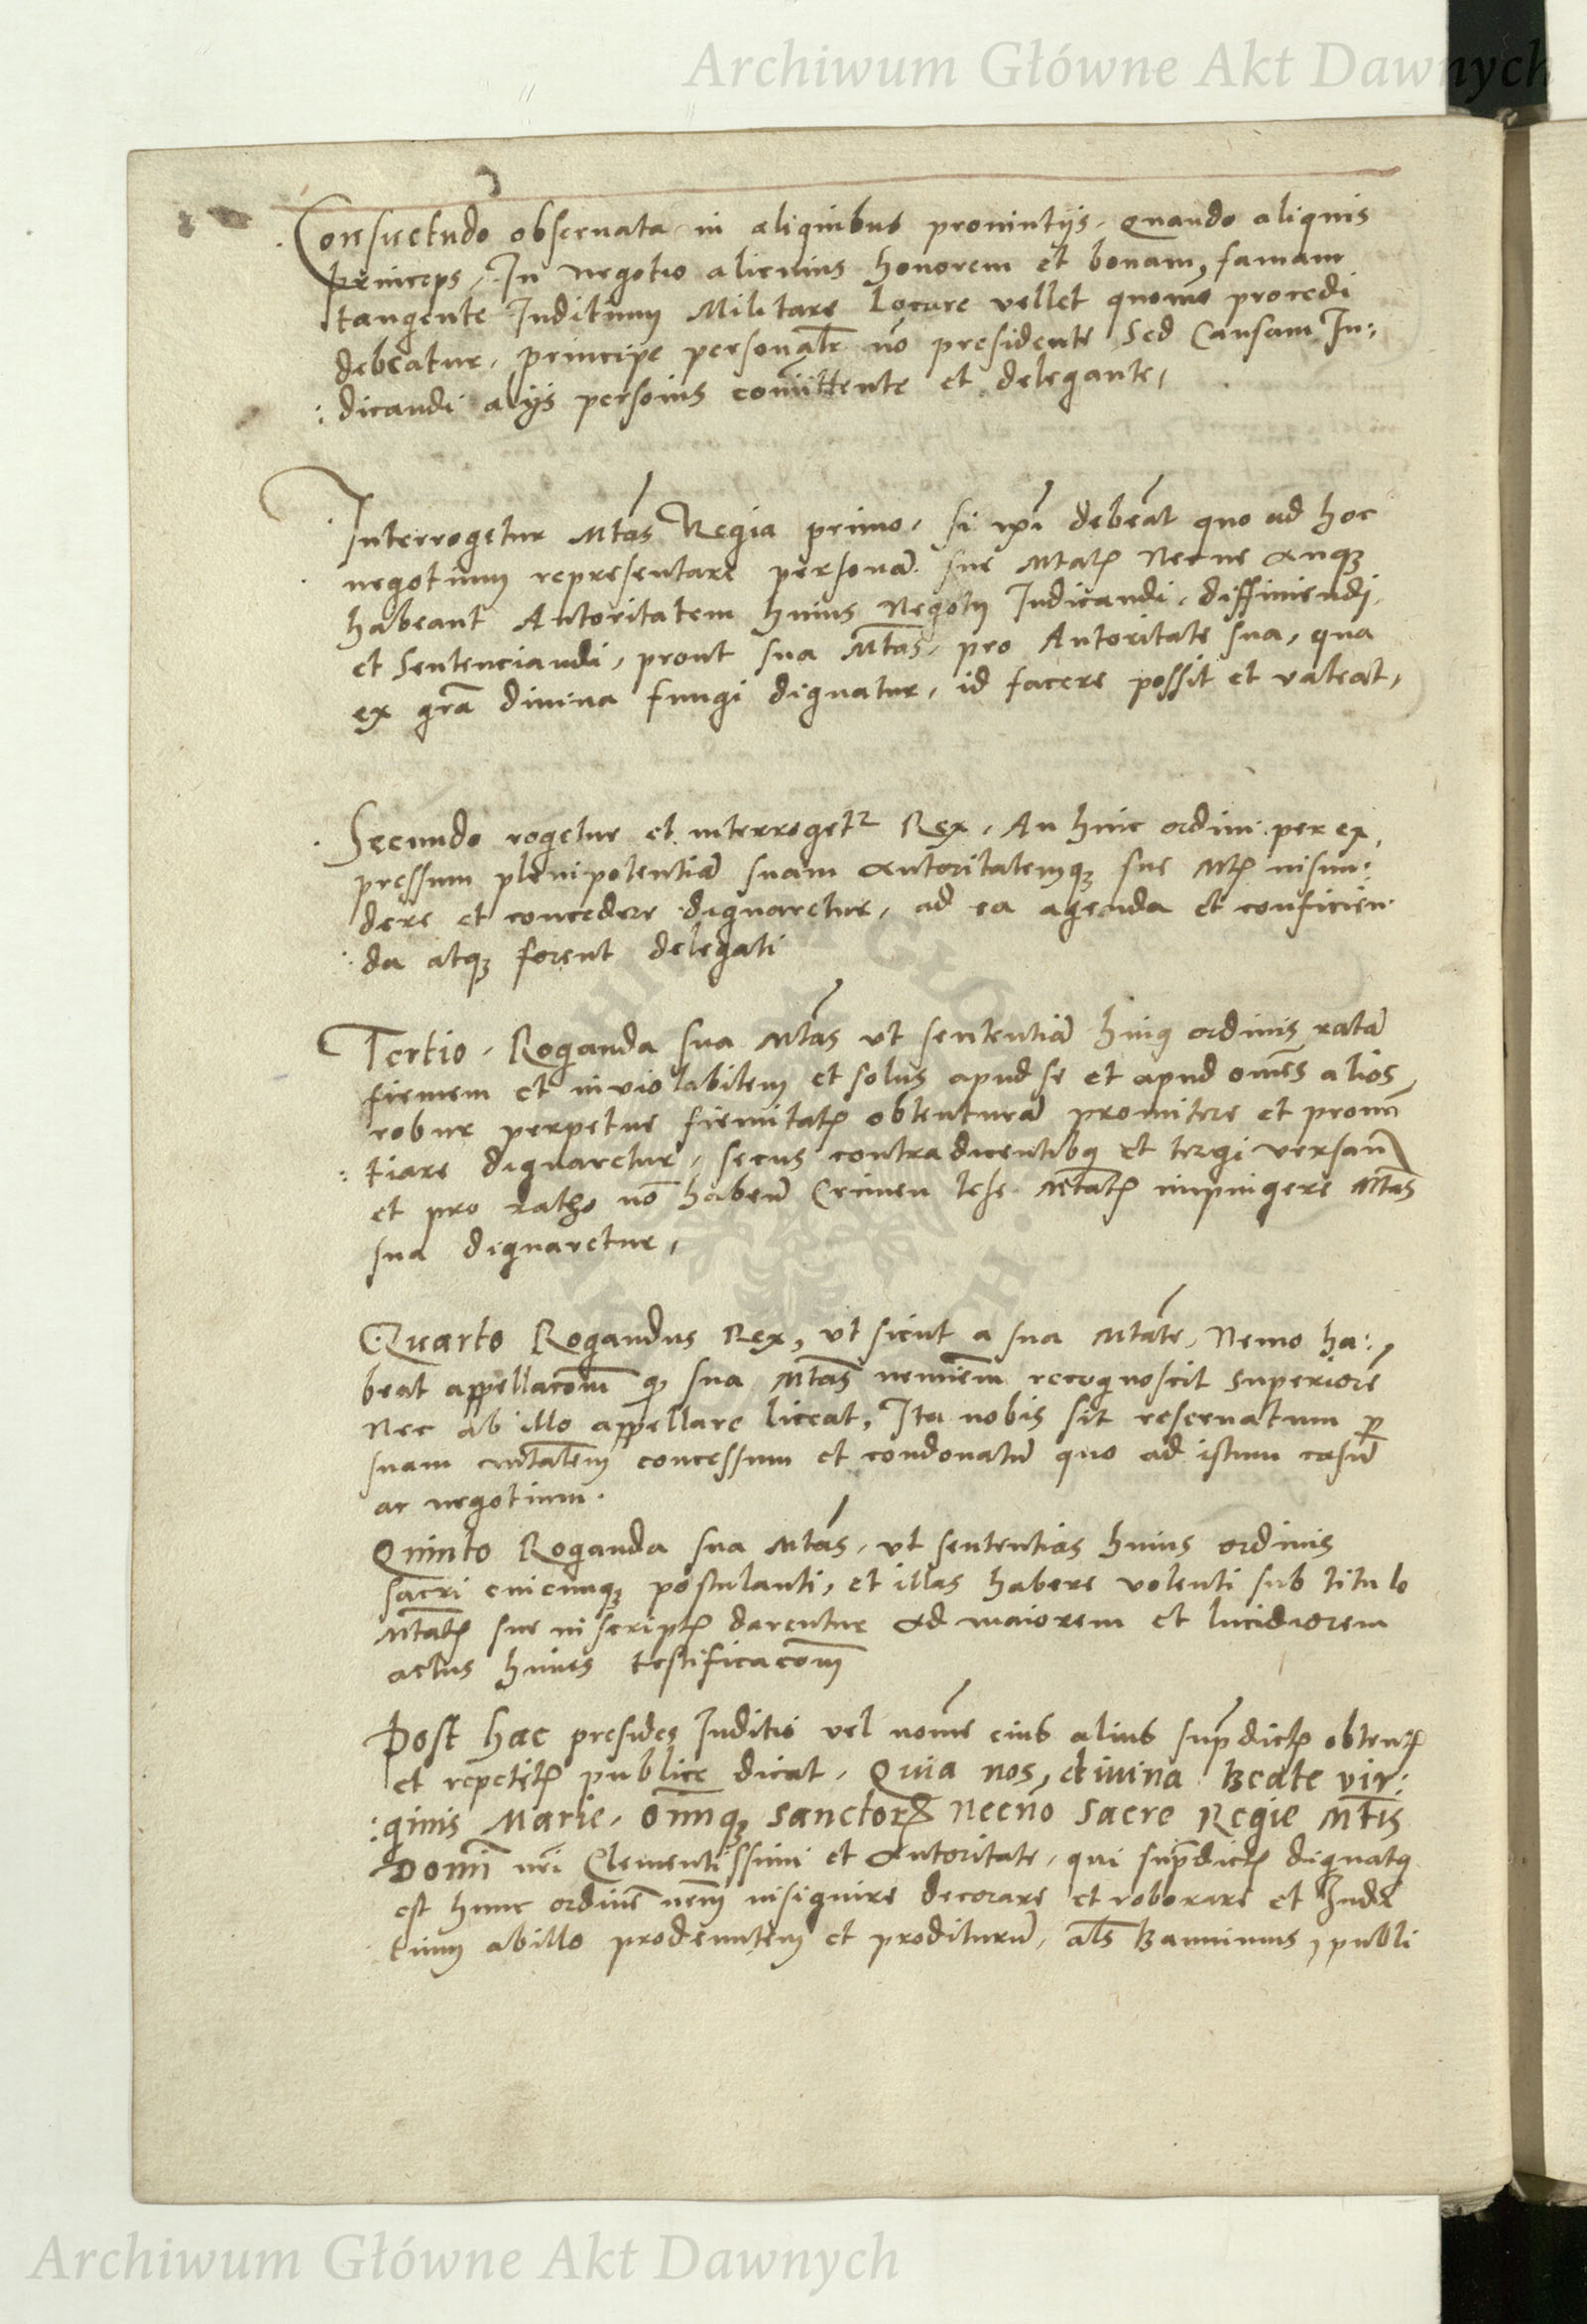 Archiwum Główne Akt Dawnych
Consuetudo obseruata in aliquibus prouintijs. Quando aliquis
princeps, In negotio alicuius honorem et bonam, famam
tangente Juditium Militare Locare vellet quomō procedi
debeatur, principe personalr̄ nō presidente Sed Causam Ju:
:dicandi alijs personis comittente et delegante,
Interrogetur Mtas Regia primo, si ipsi debeāt quo ad hoc
negotium representare personā sue Mtatis Necne Anqȝ
habeant Autoritatem huius Negotij Judicandi, diffiniendi,
et Sentenciandi, prout sua Mtas, pro Autoritate sua, qua
ex grā diuina fungi dignatur, id facere possit et valeat,
Secundo rogetur et interrogetr Rex, An huic ordini per ex,
pressum plenipotentiā suam Autoritatemqȝ sue Mtis
dere et concedere dignaretur, ad ea agenda et conficien
:da atqȝ forent delegati
Tertio, Roganda sua Mtas ut sententiā huiq ordinis ratā
firmam et inviolabilem et solus apud se et apud omēs alios,
robur perpetue firmitatis obtenturā promitere et pronū
:tiare dignaretur, secus contradicentibq et tergi versan
et pro ratho nō habenī Crimen lese Mtatis impingere Mtas
sua dignaretur,
Quarto Rogandus Rex, ut sicut a sua Mtate, Nemo ha:,
beat appellacōm qȝ sua Mtas neminēm recognoscit Superiorē
Nec ab illo appellare liceat, Ita nobis sit reseruatum p̱
suam Mtatem concessum et condonatū quo ad istum casū
ac negotium.
Quinto Roganda sua Mtas, ut sententias huius ordinis
sacri cuicunqȝ postulanti, et illas habere volenti sub titulo
Mtatis sue in scriptis darentur Ad maiorem et lucidiorem
actus huius testificacōm
Post hac presides Juditio vel nomē eius alius supradictis obtentis
et repetitis publice dicat, Quia nos, diuina Beate vir:
:ginis Marie, Omīnqȝ Sanctorꝝ Necnō Sacre Regie Mtis
Domī nrī Clementissimi et Autoritate, qui supradictis dignatq
est hunc ordinē nrm insignire decorare et roborare et Judi
tium abillo prodeuntem et proditurū, als Bannimus, publi
Archiwum Główne Akt Dawnych